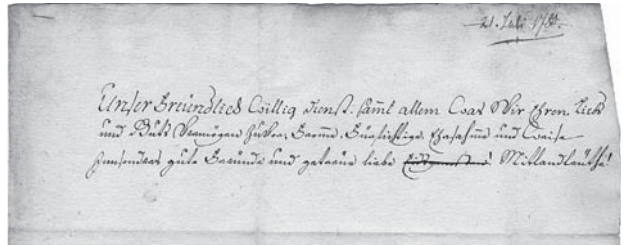 21. Juli
Unser Freündlich Willig Dienst. samt allem Was Wir Ehren. Liebs
und Guts Vermögen Zuvor. Fromme. Fürsichtige. Ehrsahme und Weise
Insonders gute Freünde und getreüe liebe Mitlandleüthe!